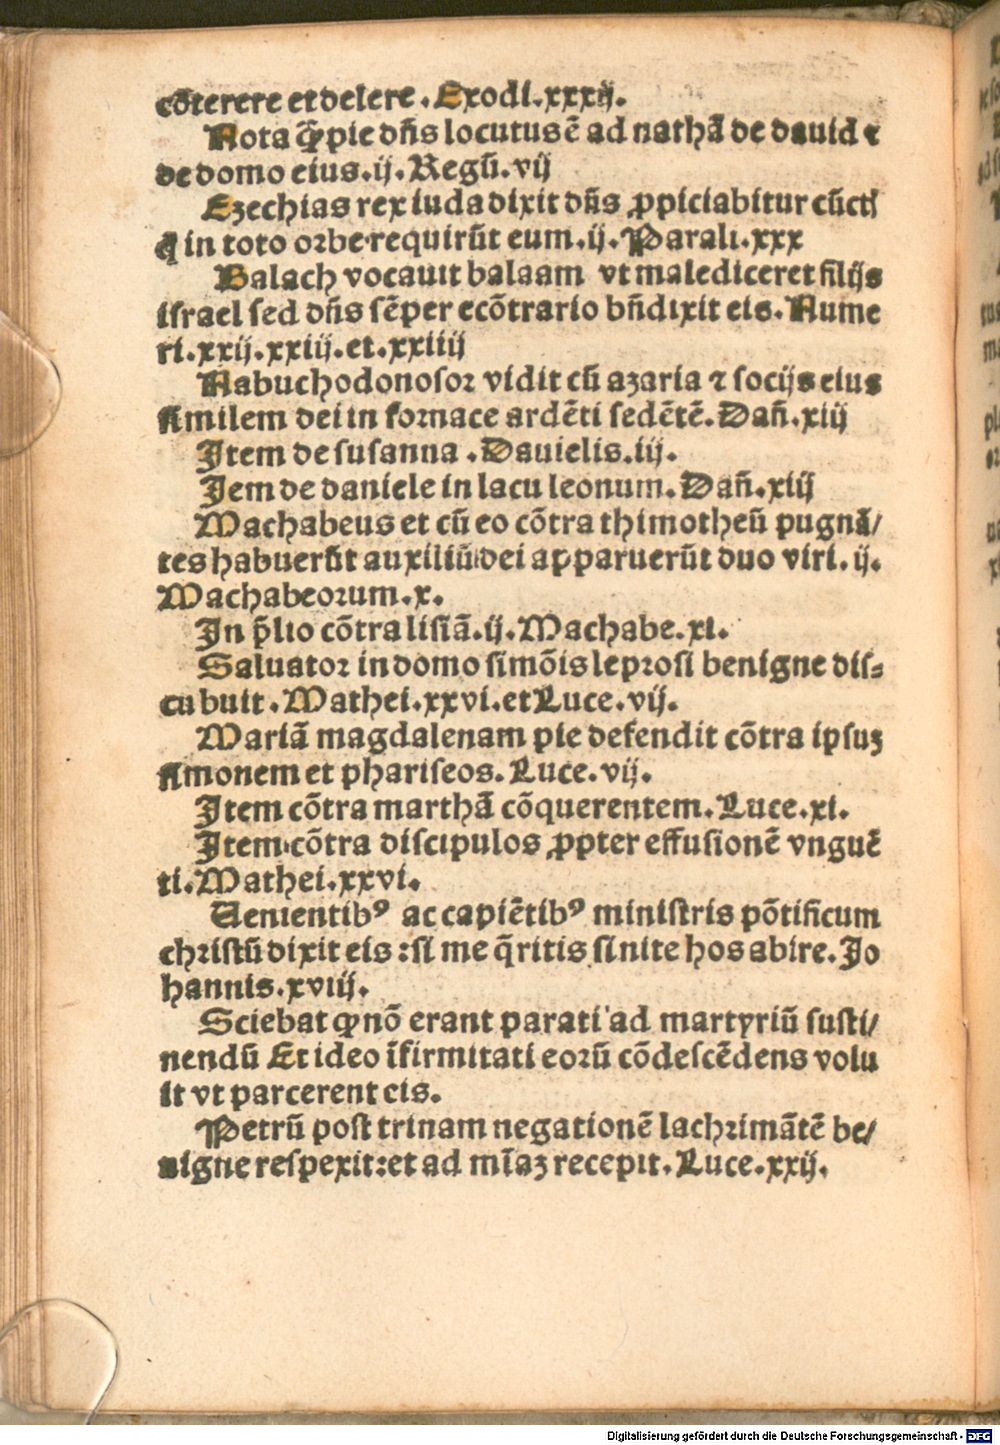 cōterere et delere. Exodi.xxxij.
Nota q̄ pie dn̄s locutus ē ad nathā de dauid ⁊
de domo eius.ij.Regū.vij
Ezechias rex iuda dixit dn̄s ꝓpiciabitur cūcti
q̄ in toto orbe requirūt eum.ij.Parali.xxx
Balach vocauit balaam vt malediceret filijs
israel sed dn̄s sēper ecōtrario bn̄dixit eis. Nume
ri.xxij.xxiij.et.xxiiij
Nabuchodonosor vidit cū azaria ⁊ socijs eius
similem dei in fornace ardēti sedētē. Dan̄.xiij
Item de susanna. Dauielis.iij.
Jem de daniele in lacu leonum. Dan̄.xiij
Machabeus et cū eo cōtra thimotheū pugnā/
tes habuerūt auxiliū dei apparuerūt duo viri.ij.
Machabeorum.x.
In p̄lio cōtra lisiā.ij.Machabe.xi.
Saluator in domo simōis leprosi benigne dis-
cubuit. Mathei.xxvi.et Luce.vij.
Mariā magdalenam pie defendit cōtra ipsuʒ
simonem et phariseos. Luce.vij.
Item cōtra marthā cōquerentem. Luce.xi.
Item cōtra discipulos ꝓpter effusionē vnguē
ti. Mathei.xxvi.
Uenientibꝰ ac capiētibꝰ ministris pōtificum
christū dixit eis: si me q̄ritis sinite hos abire. Jo
hannis.xviij.
Sciebat ꝙ nō erant parati ad martyriū susti/
nendū Et ideo īfirmitati eorū cōdescēdens volu
it vt parcerent eis.
Petrū post trinam negationē lachrimātē be/
nigne respexit: et ad mīaʒ recepit. Luce.xxij.
Digitalisierung gefördert durch die Deutsche Forschungsgemeinschaft - DFG